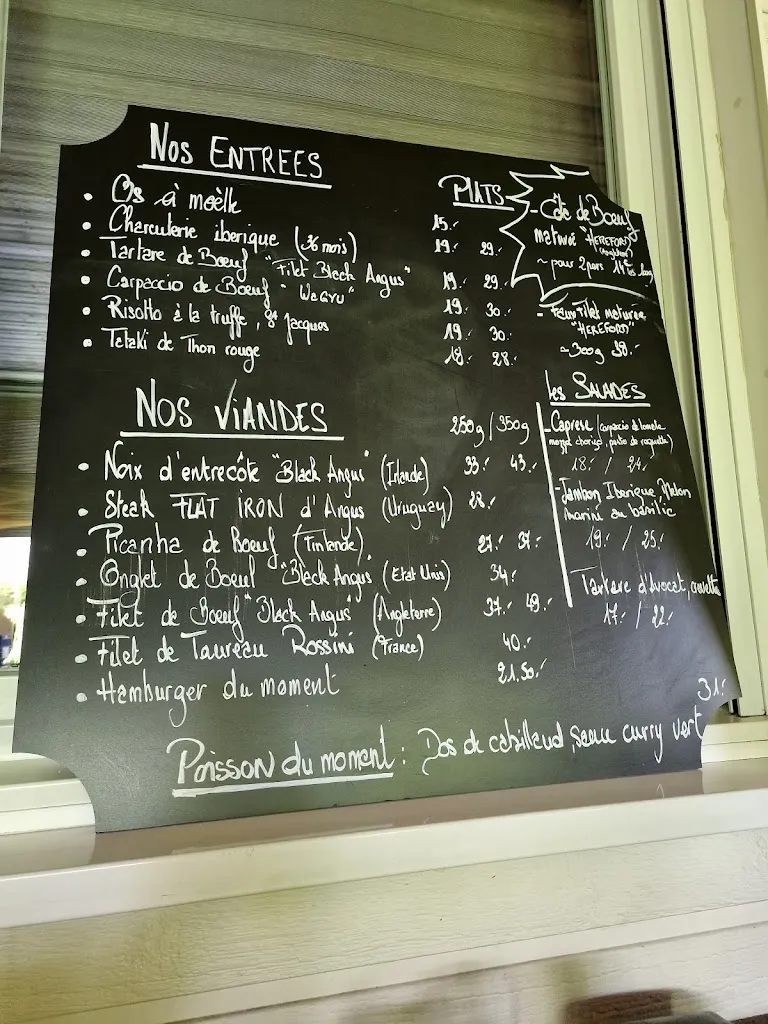 Nos ENTREES
PLATS
• Os à moëlle 15.-
• Charcuterie iberique (36 mois) 19.- 29.-
• Tartare de Boeuf "Filet Black Angus" 19.- 29.-
• Carpaccio de Boeuf "WAGYU" 19.- 30.-
• Risotto à la truffe, St Jacques 19.- 30.-
• Tataki de Thon rouge 18.- 28.-
- Côte de Boeuf
maturée "HEREFORD"
~ pour 2 pers
- Faux Filet maturée
"HEREFORD"
~300g 38.-
NOS VIANDES
250g / 350g
• Noix d'entrecôte "Black Angus" (Irlande) 33.- 43.-
• Steak FLAT IRON d'Angus (Uruguay) 28.-
• Picanha de Boeuf (Finlande) 27.- 37.-
• Onglet de Boeuf "Black Angus" (Etat Unis) 34.-
• Filet de Boeuf "Black Angus" (Angleterre) 37.- 49.-
• Filet de Taureau Rossini (France) 40.-
• Hamburger du moment 21.50.-
les SALADES
- Caprese (carpaccio de tomate
mozza chorizo, pesto de roquette)
18.- / 24.-
- Jambon Iberique, Melon
mariné au basilic
19.- / 25.-
Tartare d'Avocat, crevette
17.- / 22.-
31.-
Poisson du moment : Dos de cabillaud, sauce curry vert